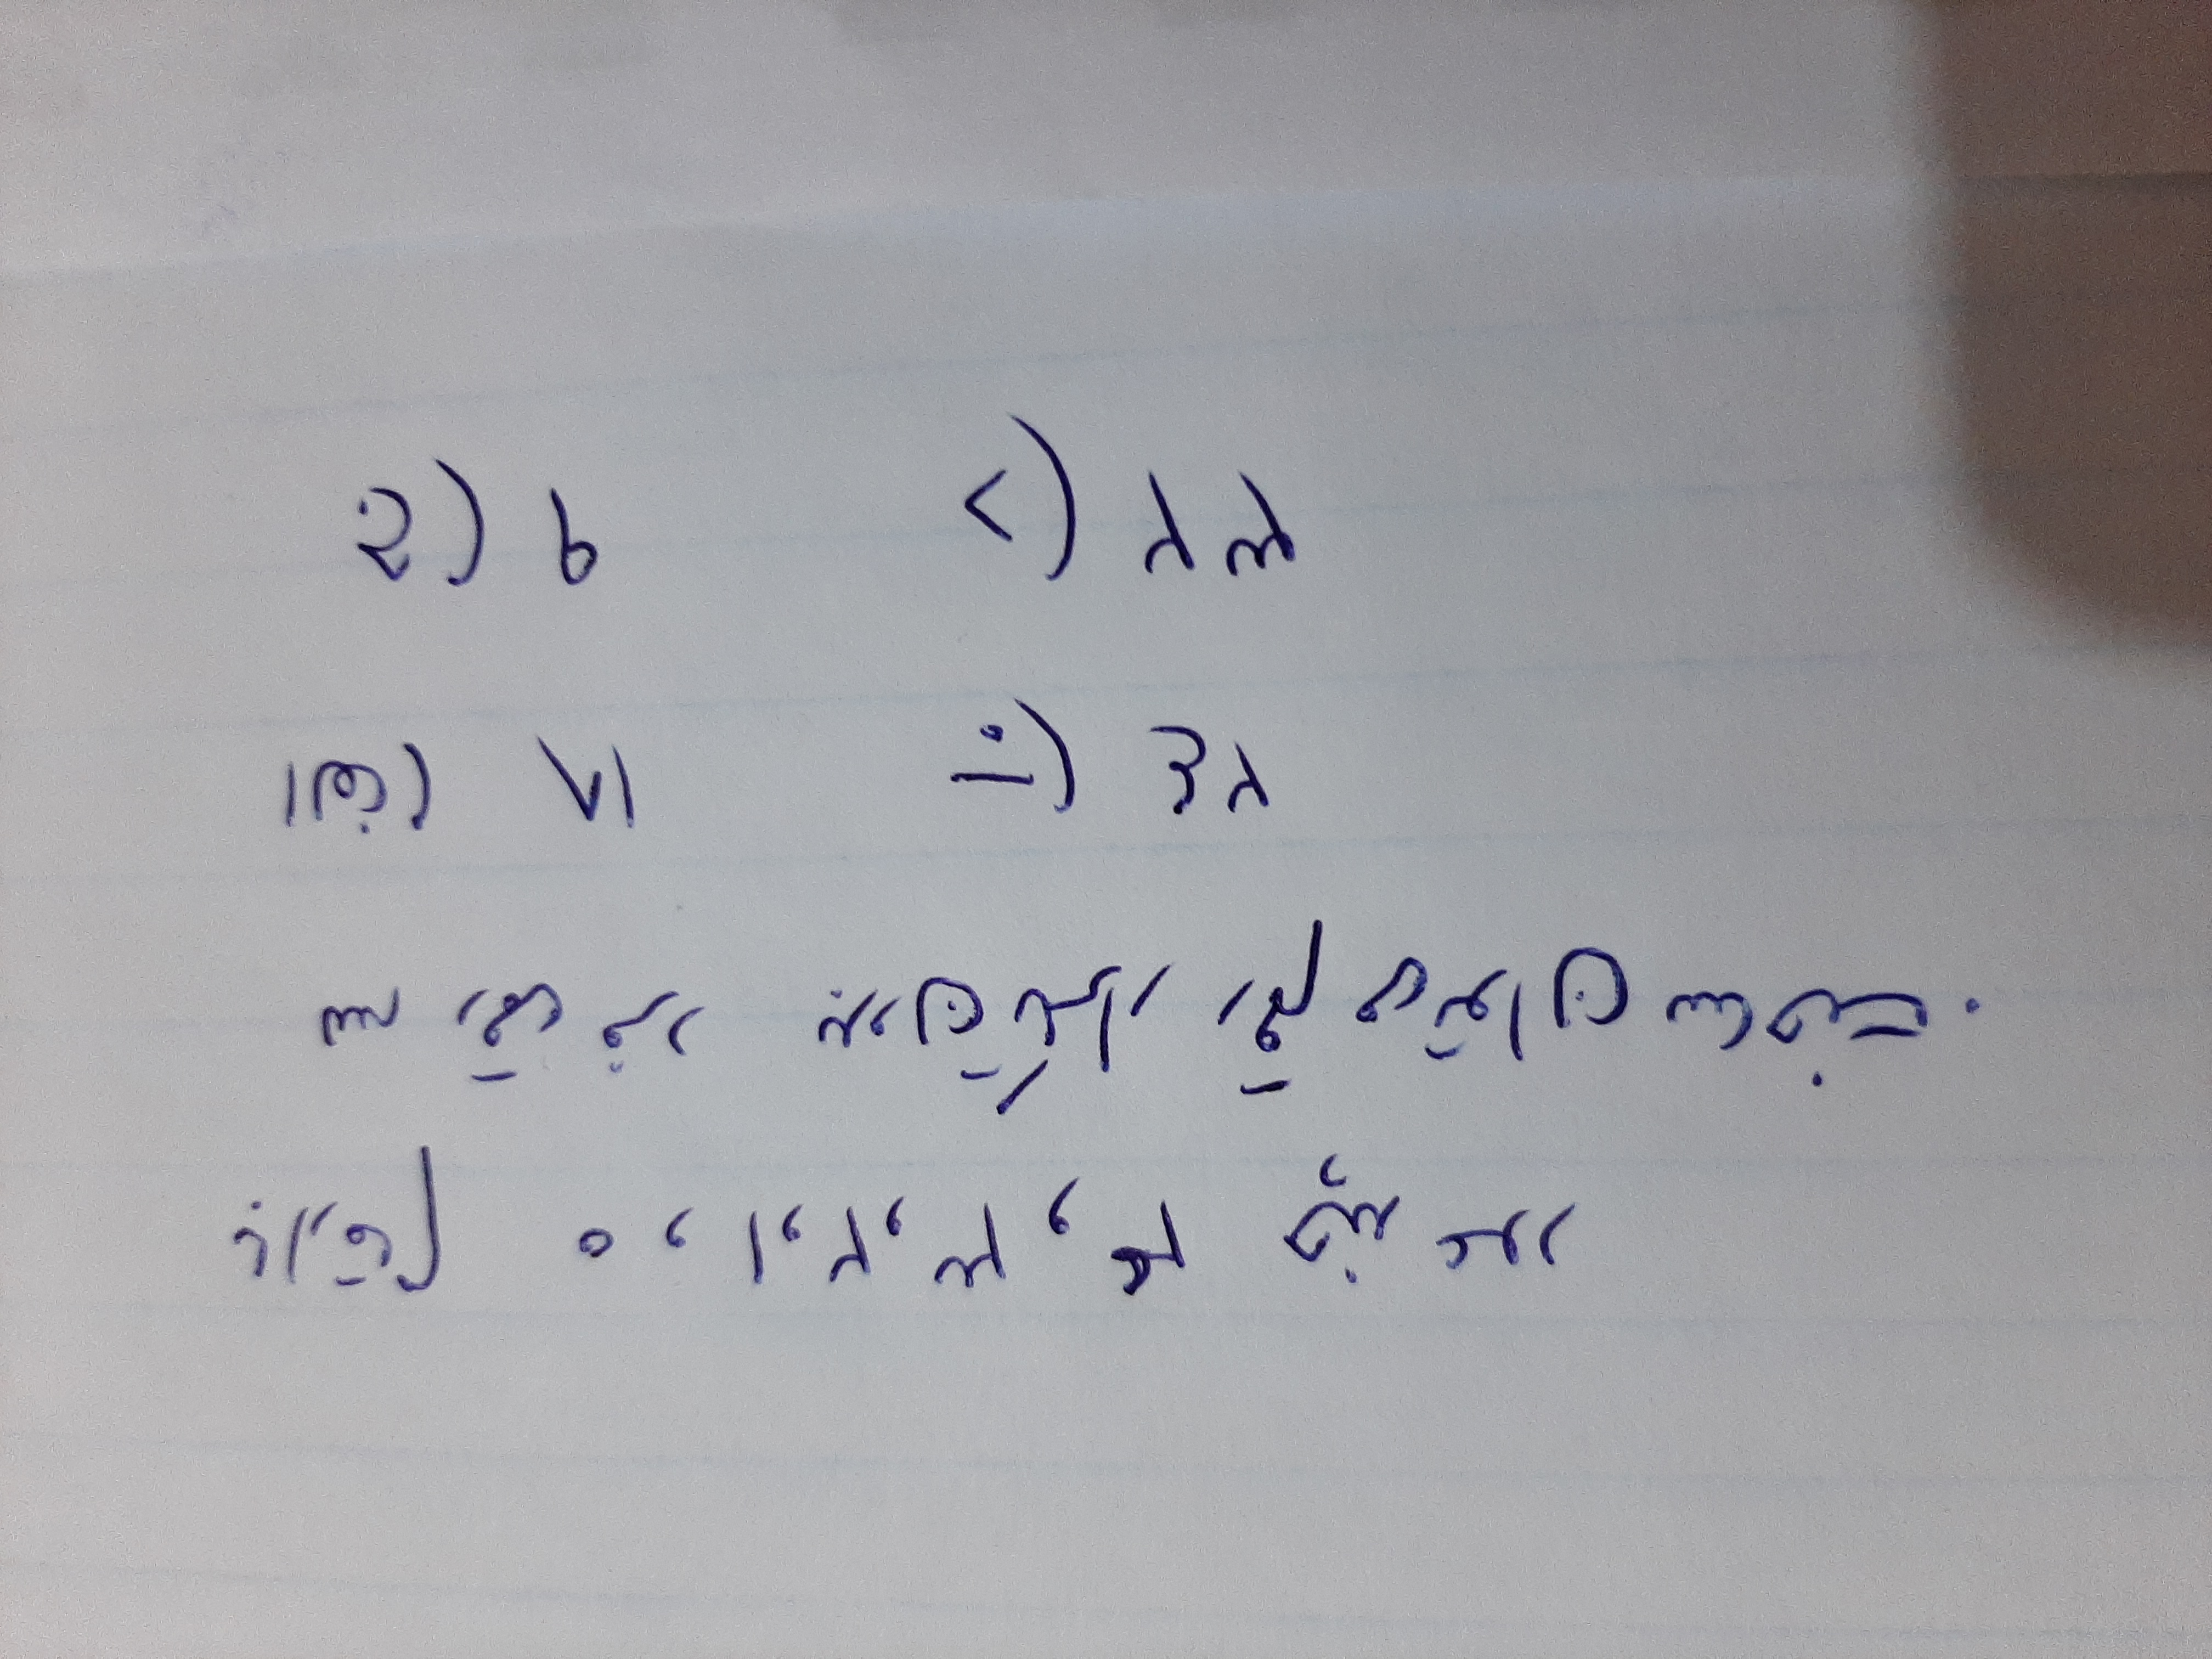 با ارقام ۰ , ۱ , ۲ , ۳ , ۴ چند عدد
سه رقمی فرد بدون تکرار رقم می توان ساخت.
الف) ۱۸ ب) ۲۴
ج) ۹ د) ۳۲